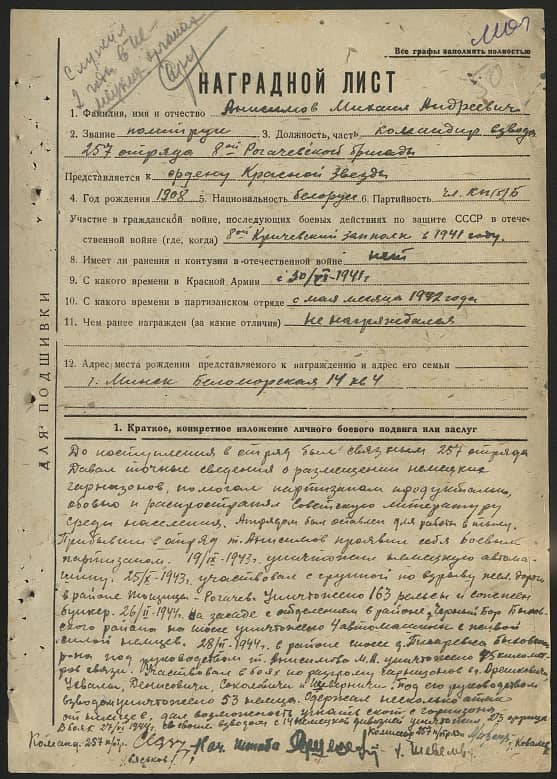 Служил
2 года в не
мецких органах
Все графы заполнять полностью
НАГРАДНОЙ ЛИСТ
1. Фамилия, имя и отчество Анисимов Михаил Андреевич
2. Звание политрук 3. Должность, часть командир взвода
257 отряда 8ой Рогачевской бригады
Представляется к ордену Красной Звезды
4. Год рождения 1908 5. Национальность белорус 6. Партийность чл. КП(б)Б
Участие в гражданской войне, последующих боевых действиях по защите СССР в отече-
ственной войне (где, когда) 8ой Кричевский запполк в 1941 году.
8. Имеет ли ранения и контузии в отечественной войне нет
9. С какого времени в Красной Армии с 30/VI-1941г
10. С какого времени в партизанском отряде с мая месяца 1942 года
11. Чем ранее награжден (за какие отличия) не награждался
12. Адрес места рождения представляемого к награждению и адрес его семьи
г. Минск Беломорская 14 кв 4
ДЛЯ ПОДШИВКИ
1. Краткое, конкретное изложение личного боевого подвига или заслуг
До поступления в отряд был связным 257 отряда
Давал точные сведения о размещении немецких
гарнизонов, помогал партизанам продуктами,
обовью и распространял Советскую литературу
среди населения. Отрядом был оставлен для работы в тылу.
Прибывши в отряд т. Анисимов проявил себя боевым
партизаном. 19/IX-1943г. уничтожил немецкую автома-
шину. 25/IX-1943г. участвовал с группой по взрыву жел. дороги
в районе Тощица - Рогачев. Уничтожено 163 рельсы и сожжен
бункер. 26/II-1944г. На засаде с отделением в районе д. Черный Бор Быхов.
района на шоссе уничтожено 4 автомашины с живой
силой немцев. 28/II-1944г. в районе шоссе д. Быховского
рона под руководством т. Анисимова М.А. уничтожено 75 километ-
ров связи. Участвовал в боях по разгрому гарнизонов
Ухвалы, Денисовичи, Соколовичи и Под его руководством
взводом уничтожено 53 немца. Сдержал несколько атак
от немцев, дал возможность угнать скот с гарнизона.
В бою 27/VI-1944г. со своим взводом с 14 немецкой дивизией уничтожено
Команд. 257 п/отр. Нач. штаба Комиссар 257 п/отряда